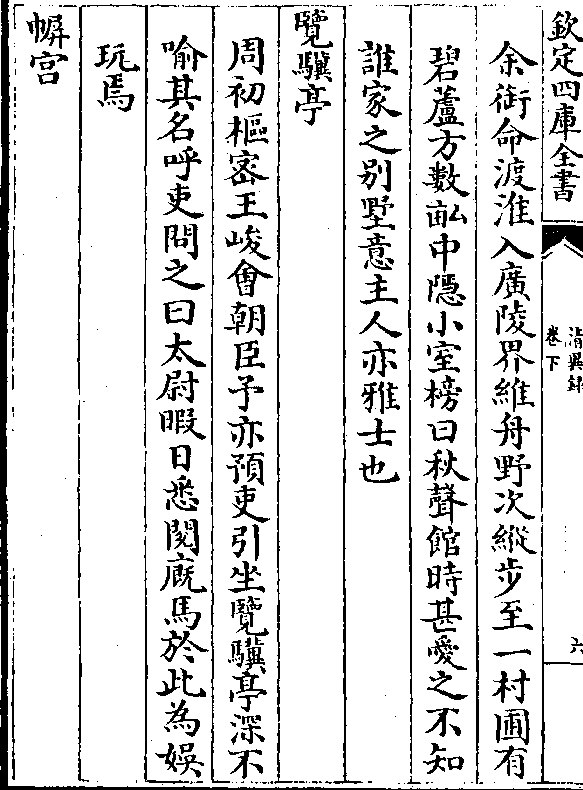 欽定四庫全書
清異録
卷下
六
余銜命渡淮入廣陵界維舟野次縱步至一村圃有
碧蘆方數畝中隱小室榜曰秋聲館時甚愛之不知
誰家之别墅意主人亦雅士也
覽驥亭
周初樞密王峻會朝臣予亦預吏引坐覽驥亭深不
喻其名呼吏問之曰太尉暇日悉閲廐馬於此為娱
玩焉
㡤宫